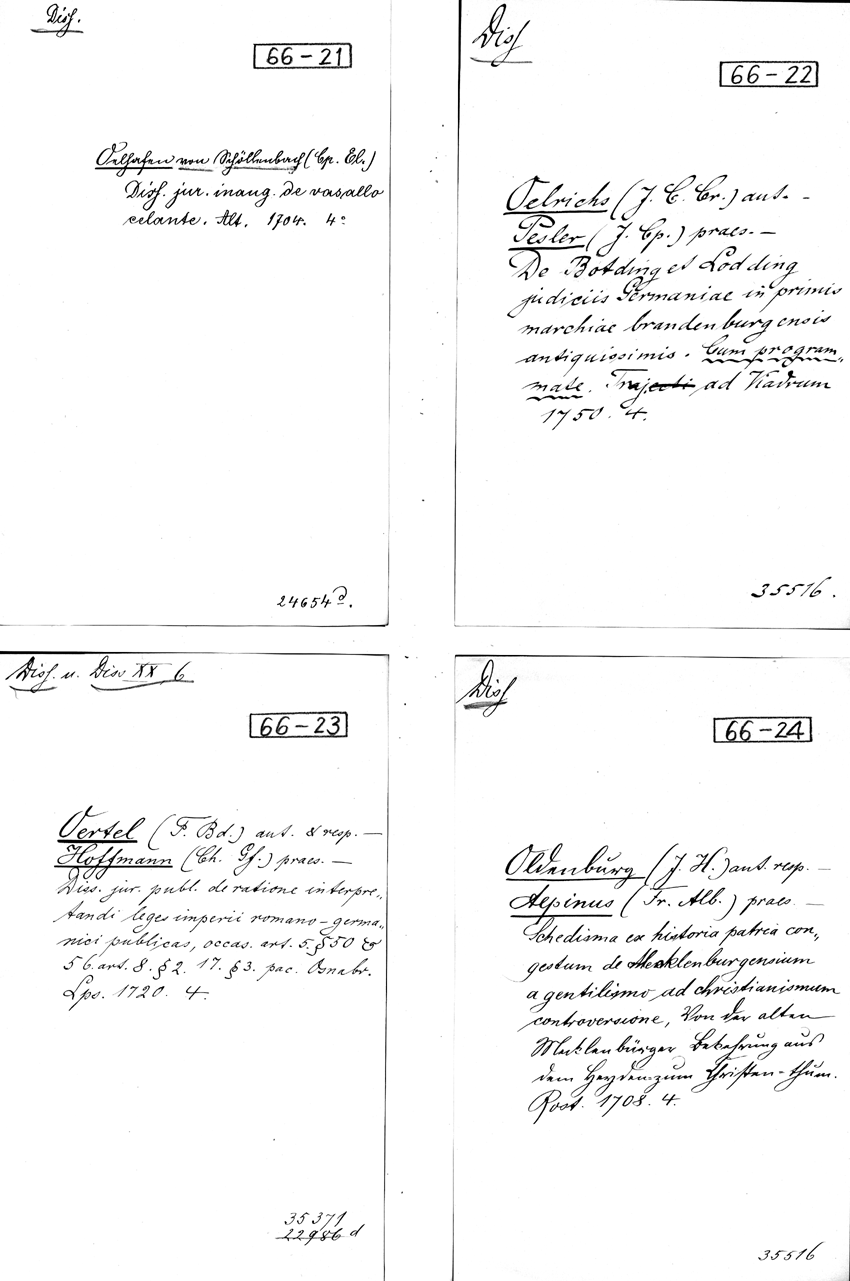 Diss.
66-21
Oelhafen von Schöllenbach (Cp. El.)
Diss. jur. inaug. de vasallo
celante. Alt. 1704. 4°
24654d.
Diss
66-22
Oelrichs (J. C. Cr.) aut. -
Pesler (J. Cp.) praes. -
De Botding et Lodding
judiciis Germaniae in primis
marchiae brandenburgensis
antiquissimis. Cum program„
mate. Trajecti ad Viadrum
1750. 4.
35516.
Diss. u. Diss XX, 6
66-23
Oertel (F. Bd.) aut. & resp. -
Hoffmann (Ch. Gf.) praes. -
Diss. jur. publ. de ratione interpre„
tandi leges imperii romano-germa„
nici publicas, occas. art. 5. § 50 &
56. art. 8. § 2. 17. § 3. pac. Osnabr.
Lps. 1720. 4.
35371
22986 d
Diss
66-24
Oldenburg (J. H.) aut. resp. -
Aepinus (Fr. Alb.) praes. -
Schedisma ex historia patria con„
gestum de Mecklenburgensium
a gentilismo ad christianismum
controversione, Von der alten
Mecklenbürger Bekehrung aus
dem Heyden- zum Christen-thum.
Rost. 1708. 4.
35516